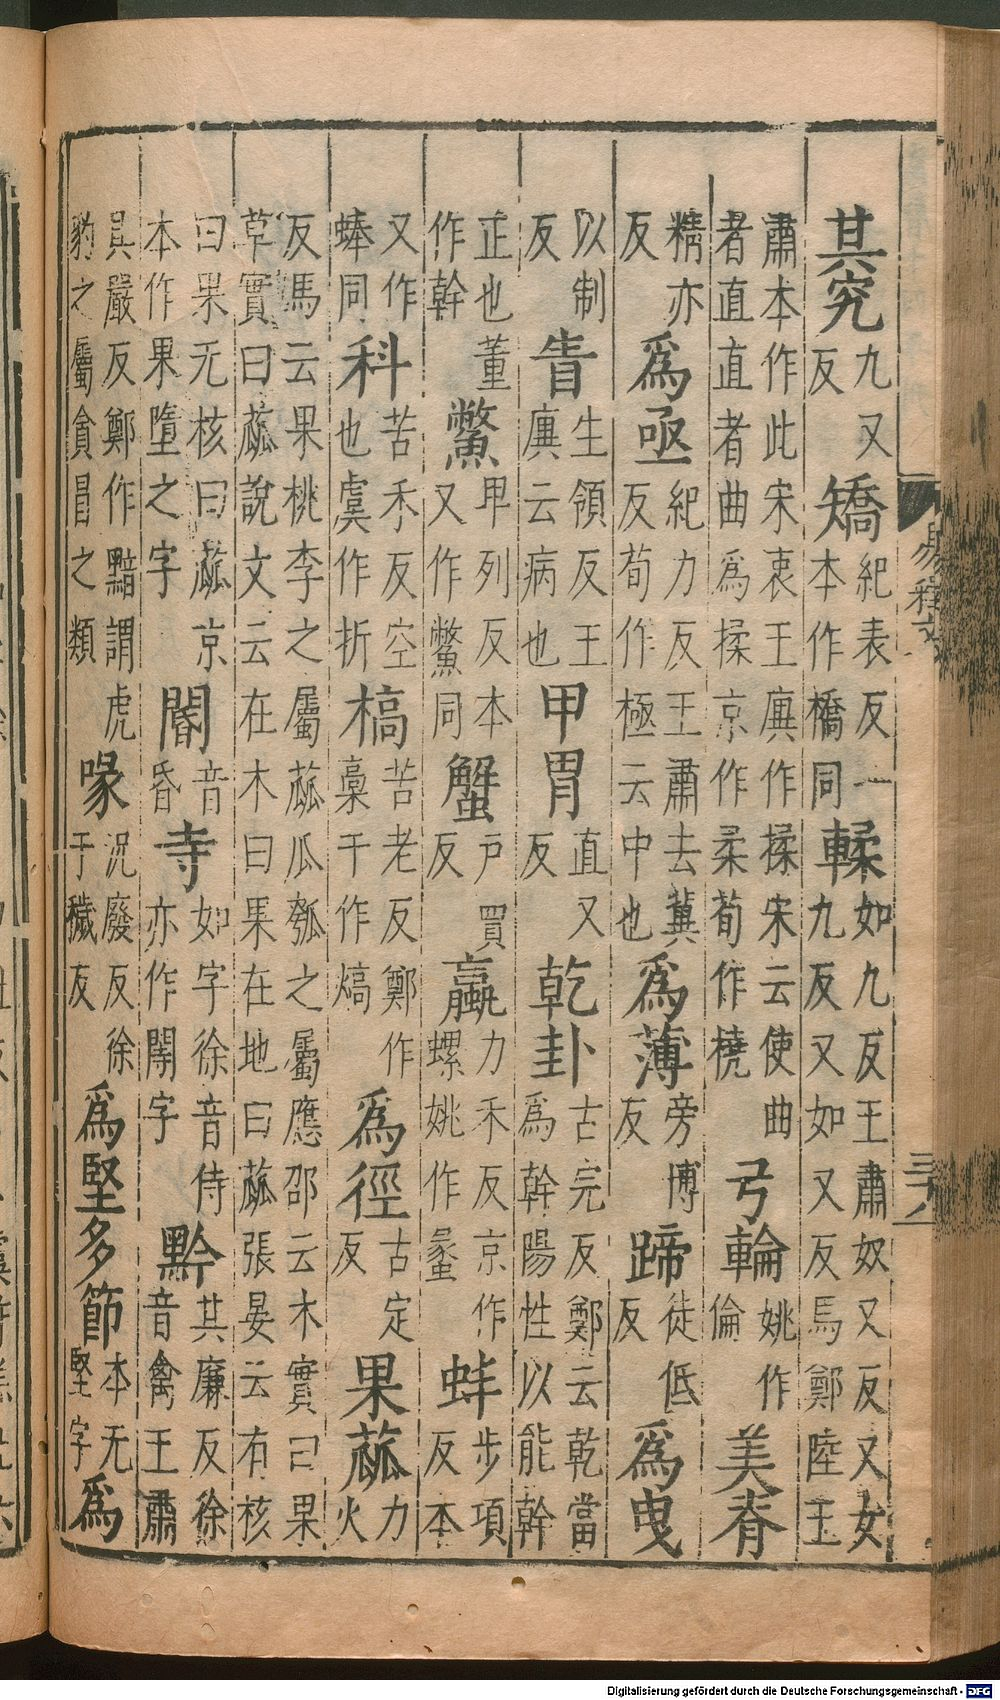 其究九又反矯紀表反一本作橋同輮如九反王肅奴又反又女九反又如又反馬鄭陸王
肅本作此宋衷王廙作揉宋云使曲者直直者曲爲揉京作柔荀作橈弓輪姚作倫美脊
精亦反爲亟紀力反王肅去冀反荀作極云中也爲薄旁博反蹄徒低反爲曳
以制反眚生領反王廙云病也甲胄直又反乾卦古完反鄭云乾當爲幹陽性以能幹
正也董作幹鱉甲列反本又作鱉同蟹戸買反蠃力禾反京作螺姚作蠡蚌步項反本
又作蜯同科苦禾反空也虞作折槁苦老反鄭作槀干作熇爲徑古定反果蓏力火
反馬云果桃李之屬蓏瓜瓠之屬應邵云木實曰果草實曰蓏說文云在木曰果在地曰蓏張晏云有核
曰果无核曰蓏京本作果墮之字閽音昏寺如字徐音侍亦作閽字黔其廉反徐音禽王肅
其嚴反鄭作黯謂虎豹之屬貪冒之類喙況廢反徐丁穢反爲堅多節本无堅字爲
易釋文
Digitalisierung gefördert durch die Deutsche Forschungsgemeinschaft - DFG